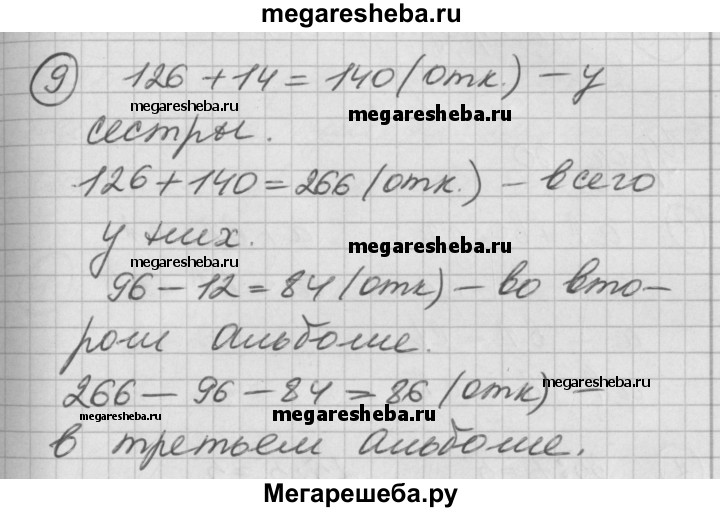 megaresheba.ru
9 126 + 14 = 140 (отк.) – у
megaresheba.ru
megaresheba.ru
сестры.
126 + 140 = 266 (отк.) – всего
у них.
megaresheba.ru
megaresheba.ru
96 – 12 = 84 (отк) – во вто-
ром альбоме.
266 – 96 – 84 = 86 (отк) –
megaresheba.ru
megaresheba.ru
megaresheba.ru
в третьем альбоме.
Мегарешеба.ру